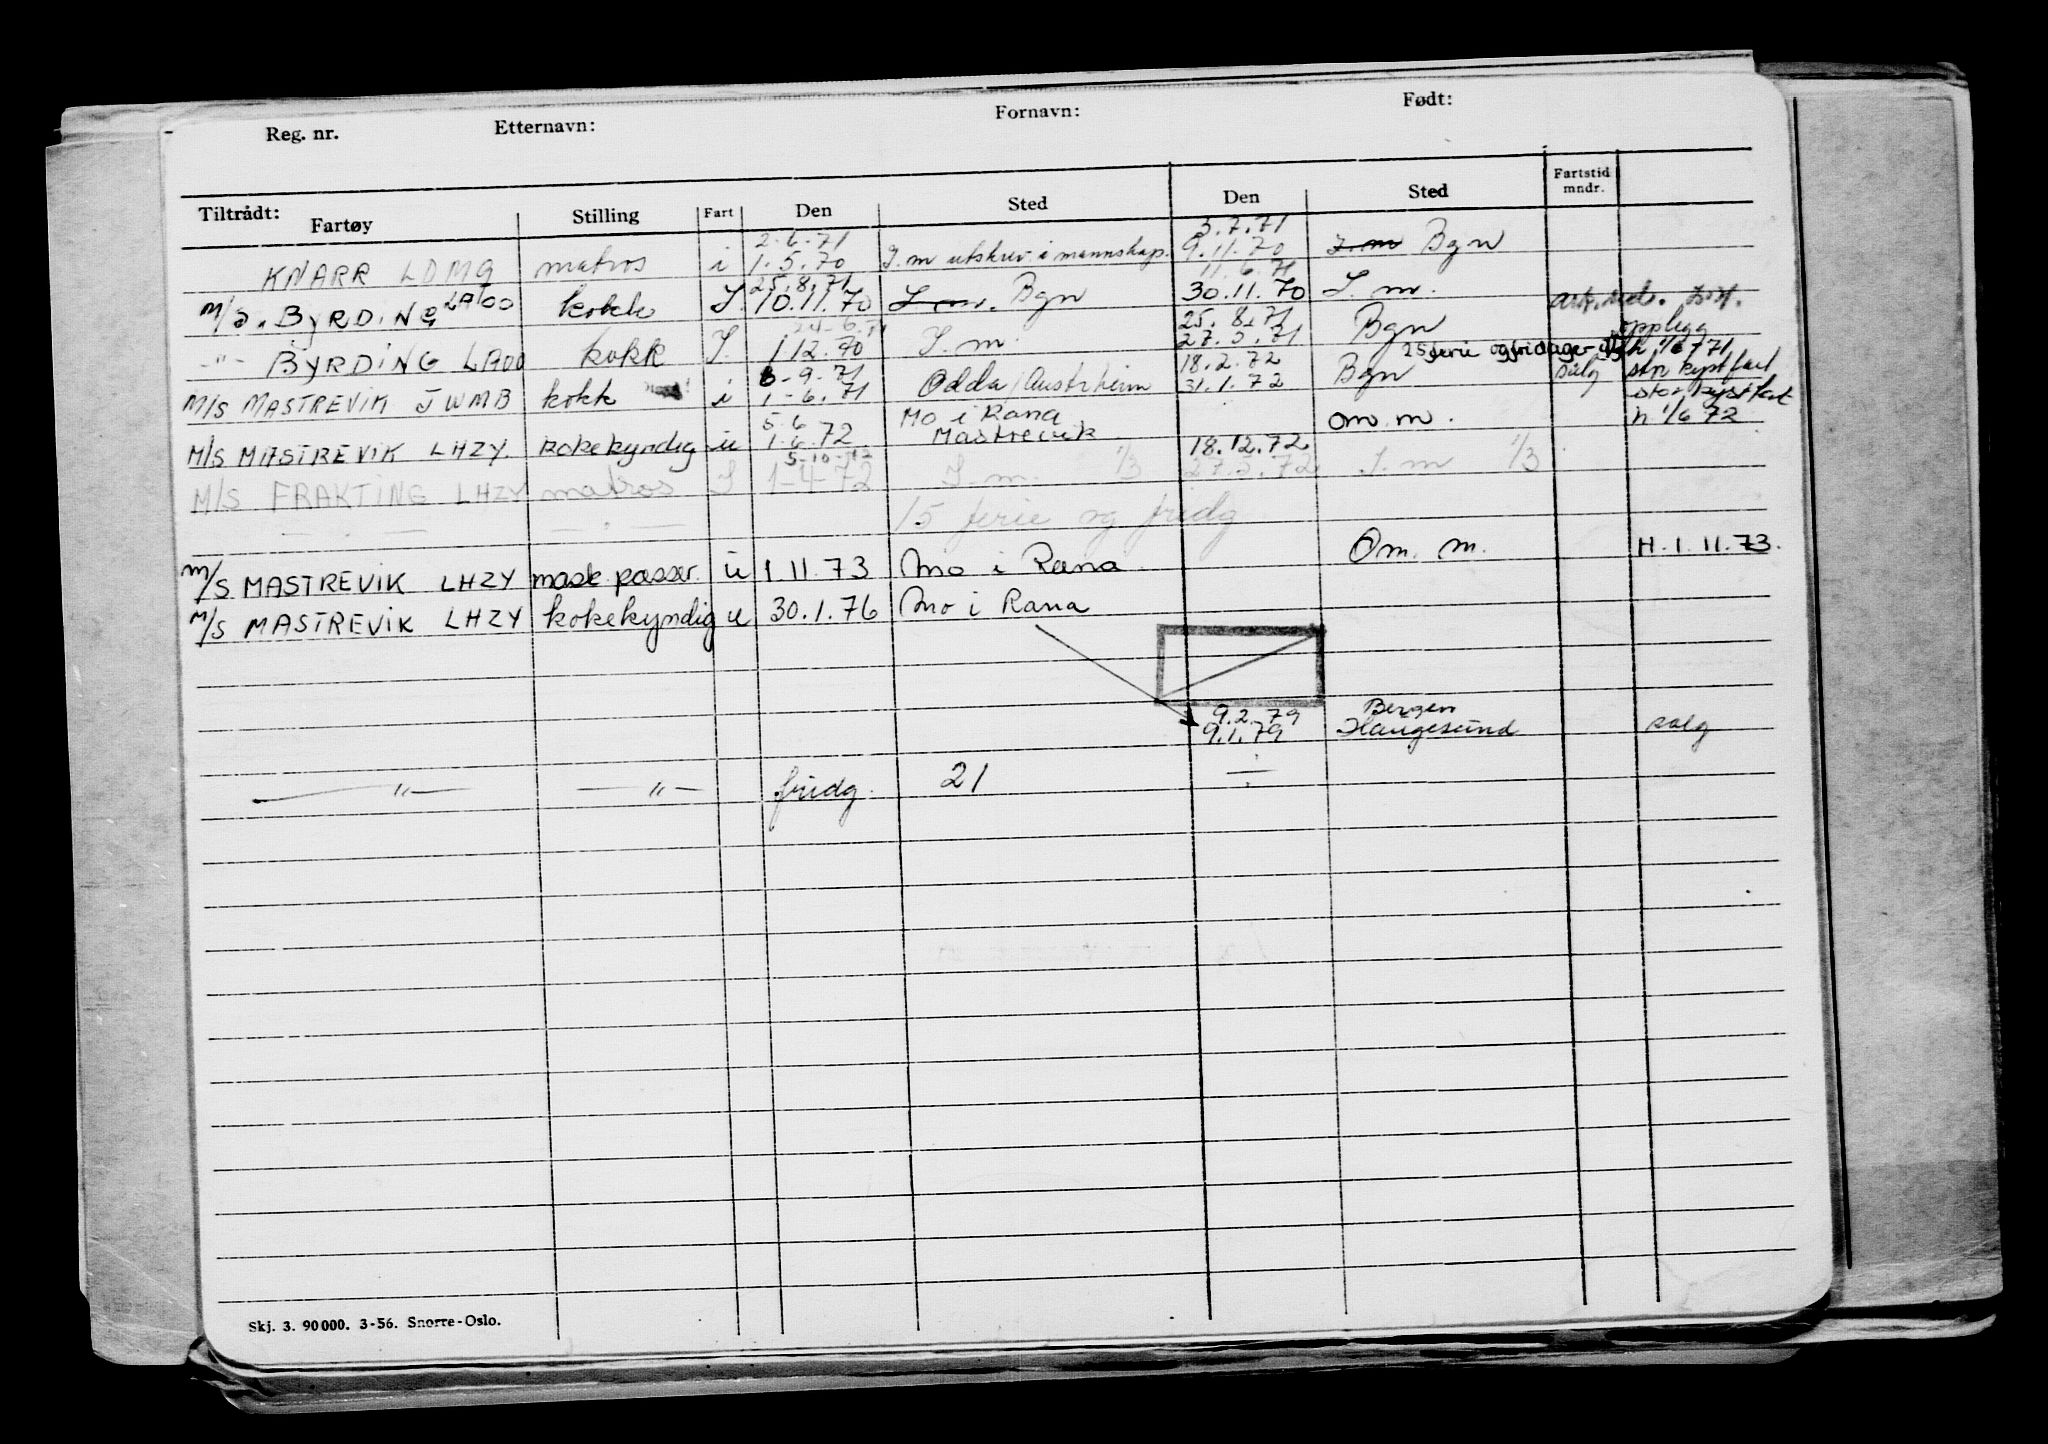 Reg. nr. Etternavn: Fornavn: Født:
Tiltrådt: Fartøy Stilling Fart Den Sted Den Sted Fartstid mndr.
2.6.71 3.7.71
KNARR LDMQ matros i 1.5.70 I.m utskrev i mannskap. 9.11.70 I.m Bgn
25.8.71 11.6.71
M/S. BYRDING LAOO kokk I. 10.11.70 I.m. Bgn 30.11.70 I.m.
24-6.71 25.8.71 opplegg
-"- BYRDING LAOO kokk I. 1 12.70 I.m. 27.5.71 Bgn
25 ferie og fridager h 1/6 71
6-9.71 18.2.72 salg stor kystfart
M/S MASTREVIK JWMB kokk i 1-6.71 Odda/Austrheim 31.1.72 Bgn stor kystfart
5.6 Mo i Rana
M/S MASTREVIK LHZY. kokekyndig u 1.6.72 Mastrevik 18.12.72 om.m. h 1/6 72
5-10-72
M/S FRAKTING LHZY matros I 1-4-72 I.m. 1/3 27.5.72 I.m 1/3
— " — — " — 15 ferie og fridg
M/S MASTREVIK LHZY mask passer. u 1.11.73 Mo i Rana Om. m. H.1.11.73.
M/S MASTREVIK LHZY kokekyndig u 30.1.76 Mo i Rana
9.2.79 Bergen
9.1.79 Haugesund salg
— " — — " — fridg. 21 ÷
Skj. 3. 90 000. 3-56. Snorre-Oslo.